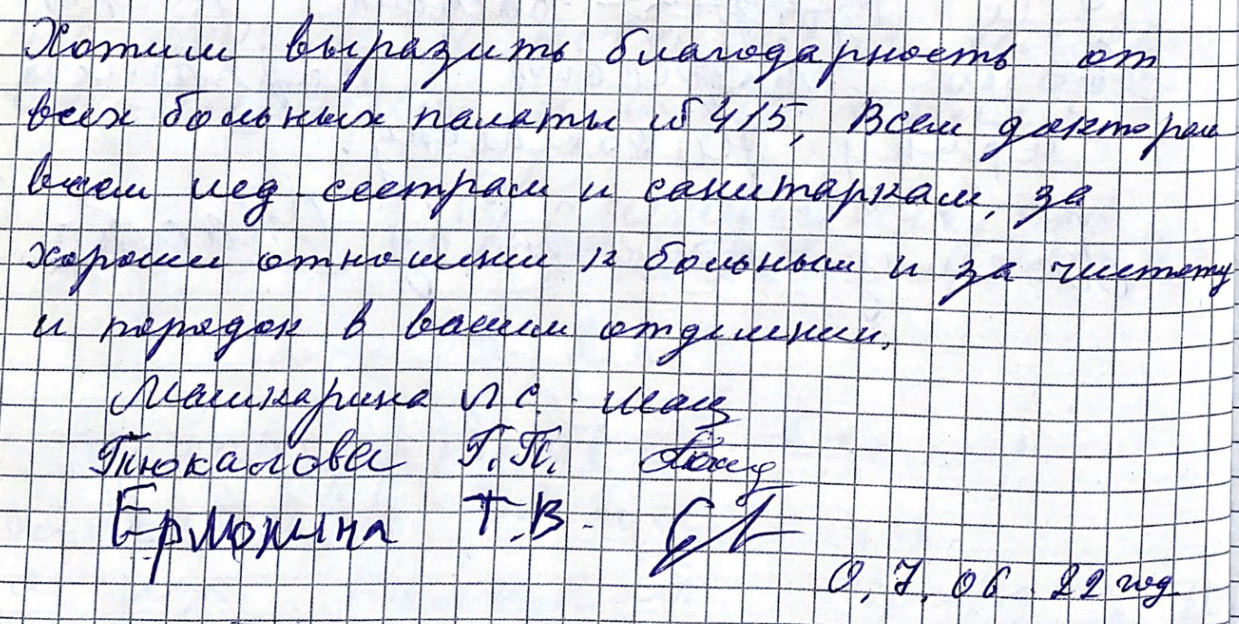 Хотим выразить благодарность от
всех больных палаты № 415, Всем докторам
всем мед. сестрам и санитаркам, за
хороши отношении к больным и за чистоту
и порядок в вашем отделении.
Машкарина Л С.
Тюкалова Г. П.
Ермокина Т. В -
0, 7, 06 22 год